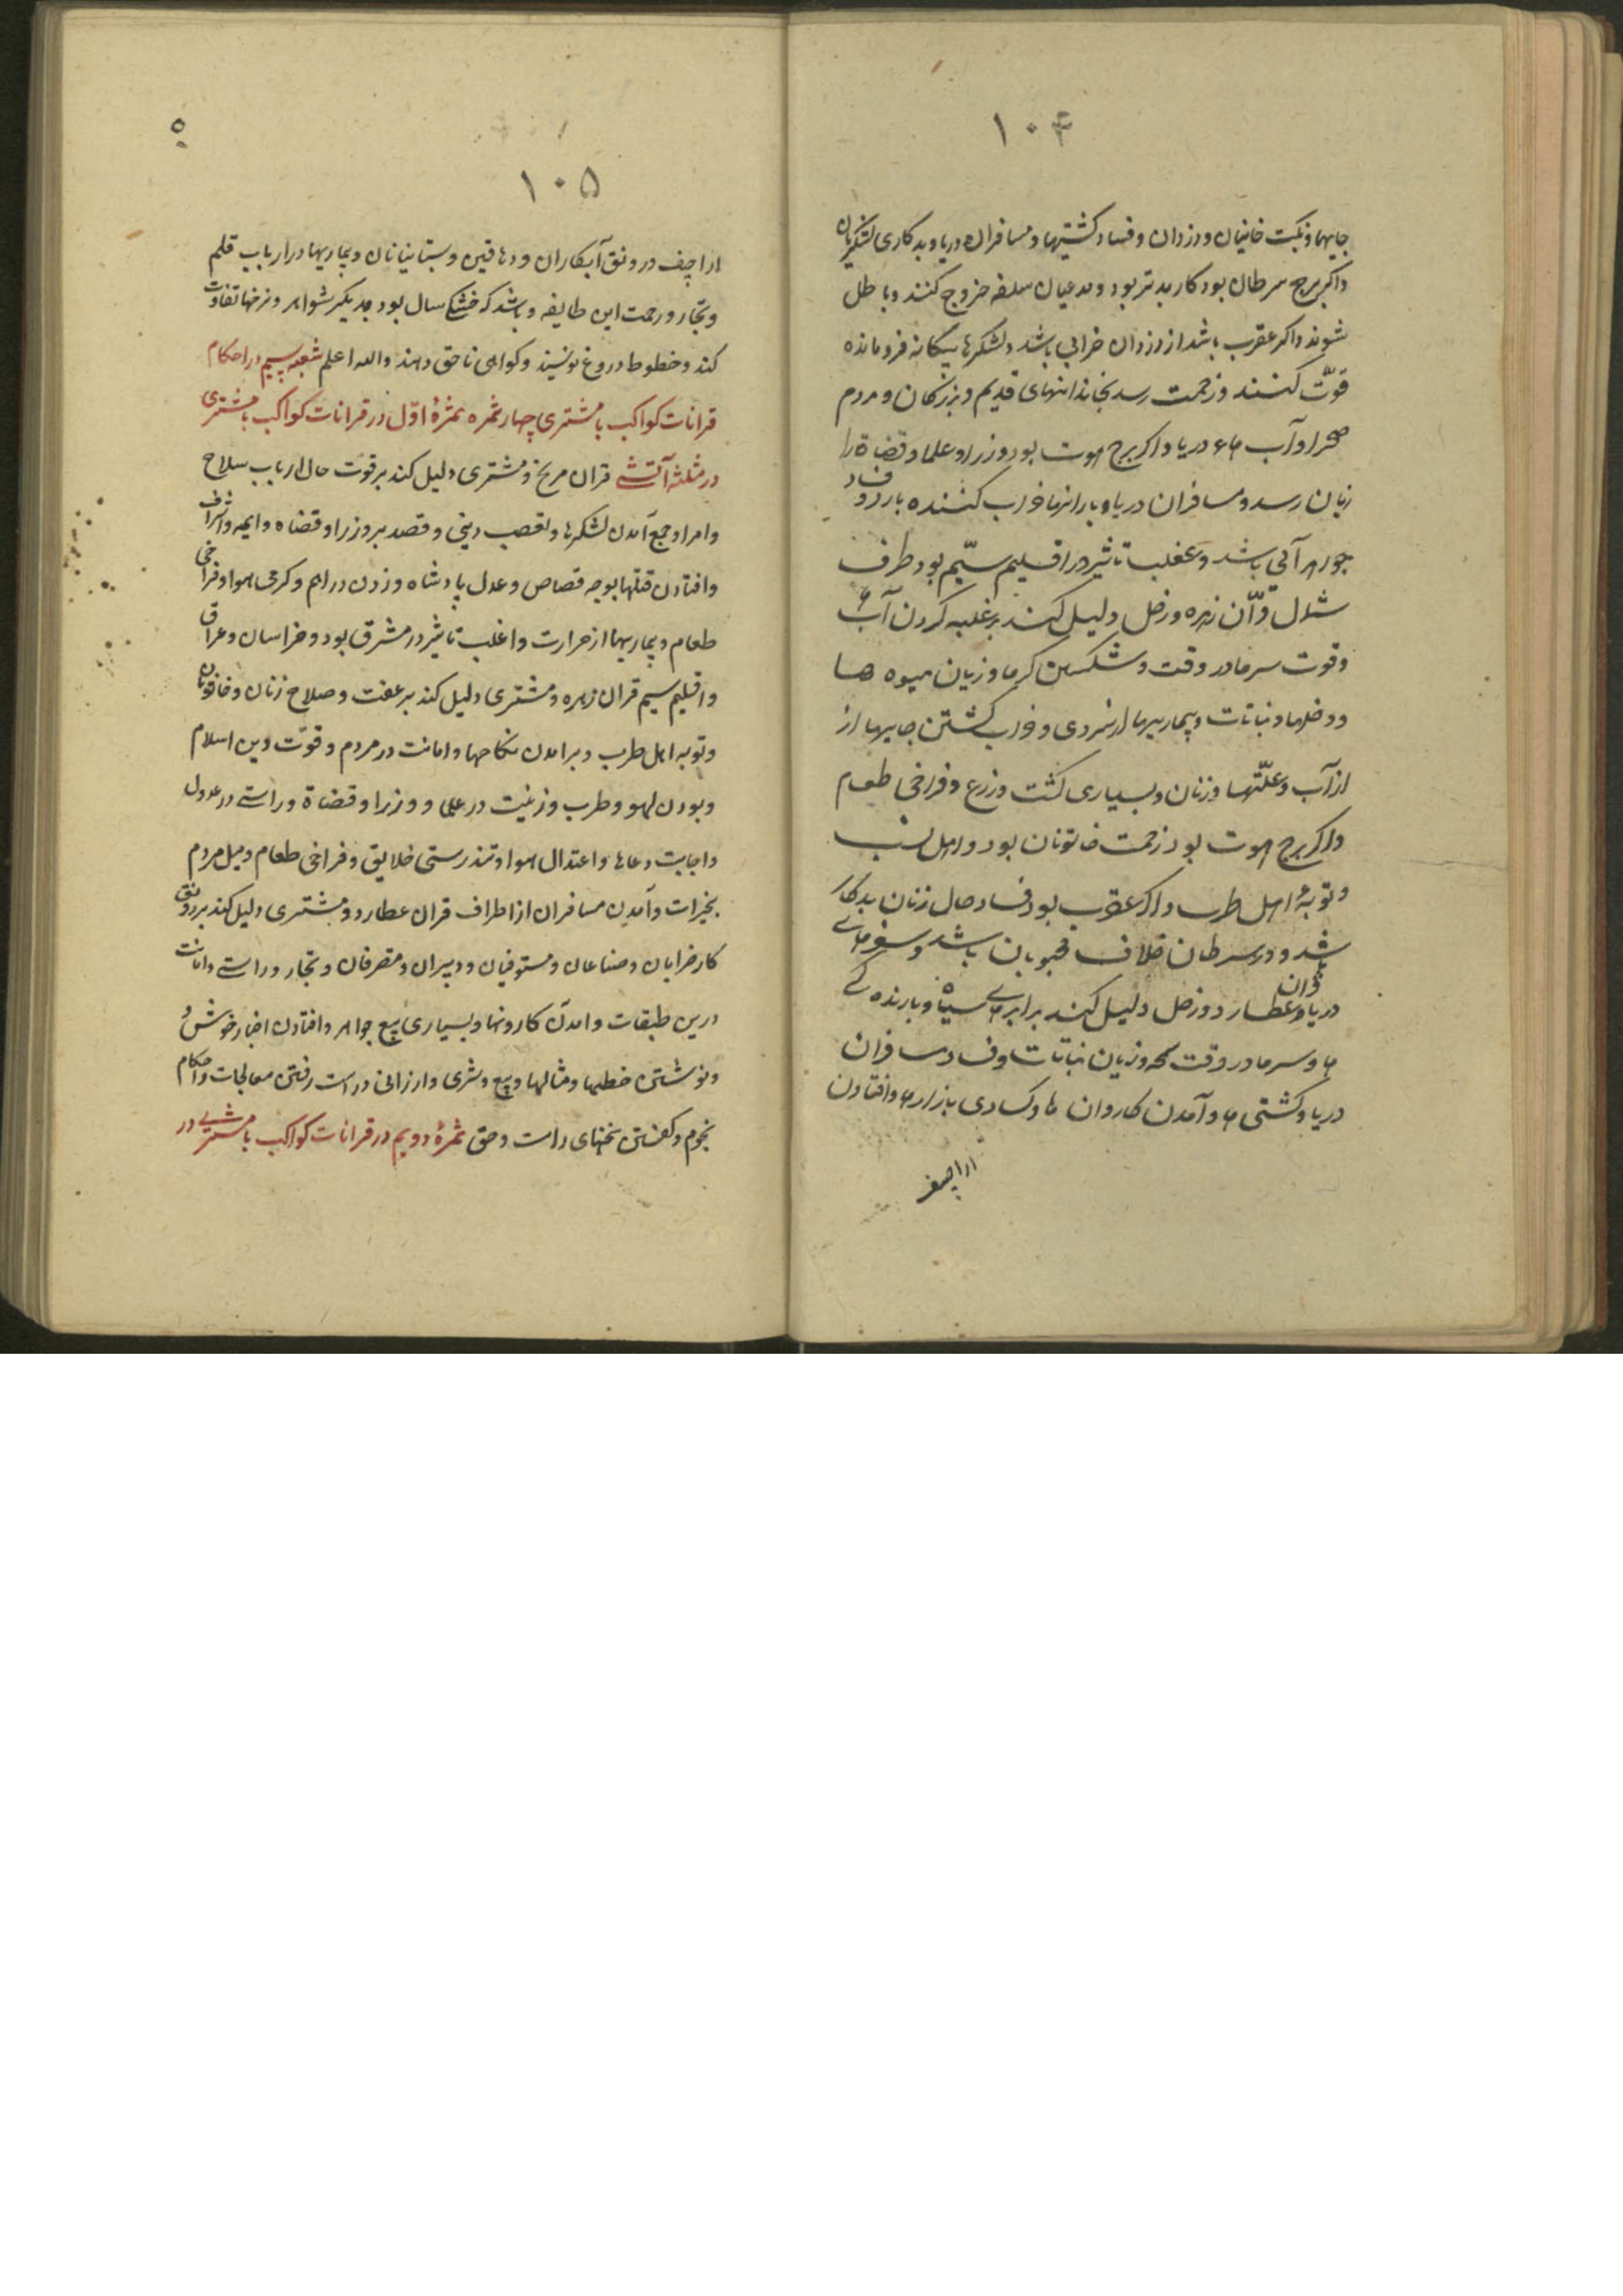 ۱۰۴
جایها و نکبت خاینان و دزدان و فساد کشتیها و مسافران دریا و بدکاری لشکریان
و اگر برج سرطان بود کار بدتر بود و مدعیان سلفه خروج کنند و باطل
شوند و اگر عقرب باشد از دزدان خرابی باشد و لشکرها بیکانه فرومانده
قوّت کنند و زحمت رسد بخاندانهای قدیم و بزرکان و مردم
صحرا و آب ها و دریا و اکر برج حوت بود وزرا و علما و قضاة را
زیان رسد و مسافران دریا و بارانها خراب کننده بارد و فساد
جواهر آبی باشد و غلب تاثیر در اقلیم سیّم بود طرف
شمال قرآن زهره و زحل دلیل کند بر غلبه کردن آب ها
و قوت سرما در وقت و شکستن کرما و زیان میوه ها
و دخلها و نباتات و بیماریها از سردی و خراب کشتن جایها از
از آب و علّتها و زنان و بسیاری کشت و زرع و فراخی طعام
و اکر برج حوت بود زحمت خاتونان بود و اهل نسب
و توبۀ اهل طرب و اکر عقرب بود فساد حال زنان بدکار
باشد و در سرطان خلاف محبوبان باشد و سفرهای
دریا و قران عطارد و زحل دلیل کند بر ابرهای سیاه و بارنده کی
ها و سرما در وقت و زیان نباتات و فساد مسافران
دریا و کشتی ها و آمدن کاروان ها و کسادی بازارها و افتادن
اراجیف
۱۰۵
اراجیف در رونق آبکاران و دهاقین و بستانیانان و بیماریها در ارباب قلم
و تجار و رحمت این طایفه و باشد که خشک سال بود و نرخها تفاوت
کند و خطوط دروغ نویسند و کواهی ناحق دهند و الله اعلم شعبه سیم در احکام
قرانات کواکب با مشتری چهار ثمره ثمرۀ اوّل در قرانات کواکب با مشتری
در مثلثه آتشی قران مریخ و مشتری دلیل کند بر قوت حال ارباب سلاح
و امرا و جمع آمدن لشکرها و تعصب دینی و قصد بر وزرا و قضاه و ایمه و اشراف
و افتادن قتلها بوجه قصاص و عدل پادشاه و زدن دراهم و کرمی هوا و فراخی
طعام و بیماریها از حرارت و اغلب تاثیر در مشرق بود و خراسان و عراق
و اقلیم سیم قران زهره و مشتری دلیل کند بر عفت و صلاح زنان و خاتونان
و توبه اهل طرب و برآمدن نکاحها و امانت در مردم و قوّت دین اسلام
و بودن لهو و طرب و زینت در علما و وزرا و قضاة و راستی در عدول
و اجابت دعاها و اعتدال هوا و تندرستی خلایق و فراخی طعام و میل مردم
بخیرات و آمدن مسافران از اطراف قران عطارد و مشتری دلیل کند بر رونق
کارخرایان و صناعان و مستوفیان و دبیران و متصرفان و تجار و راستی و امانت
درین طبقات و آمدن کاروانها و بسیاری بیع جواهر و افتادن اخبار خوش و
و نوشتن خطها و مثالها و بیع و شری و ارزانی و راست رفتن معالجات و احکام
نجوم و کفتن سخنهای راست و حق ثمرۀ دویم در قرانات کواکب با مشتری در